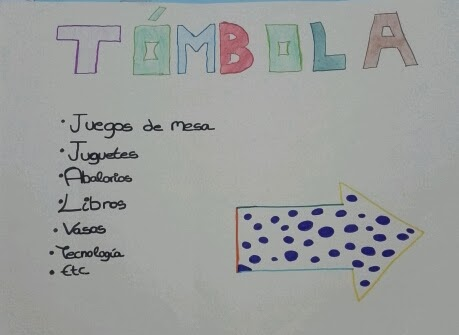 TÓMBOLA
· Juegos de mesa
· Juguetes
· Abalorios
· Libros
· Vasos
· Tecnología
· Etc